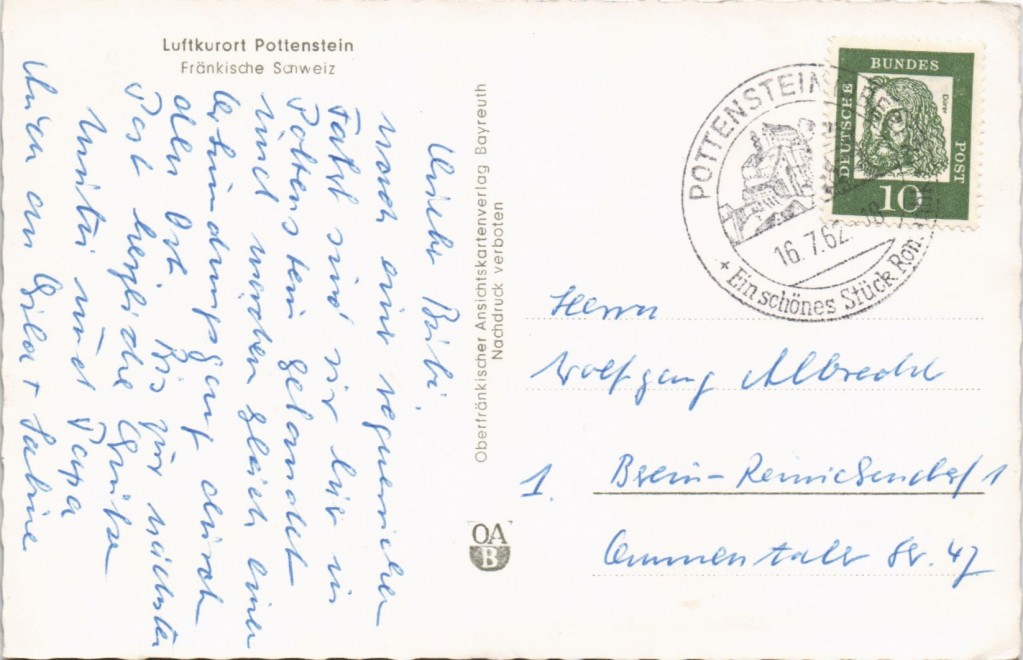 Luftkurort Pottenstein
Fränkische Schweiz
Liebe Bibi,
nach einer regnerischen
Fahrt sind wir hier in
Pottenstein gelandet
und machen gleich einen
Erkundungsgang durch
den Ort. Bis zur nächsten
Post herzliche Grüße
Mutti und Papa
Auch an Gila + Sabine
Oberfränkischer Ansichtskartenverlag Bayreuth
Nachdruck verboten
OA
B
POTTENSTEIN
16.7.62-18
+ Ein schönes Stück Rom
DEUTSCHE
BUNDES
POST
Dürer
10
Herrn
Wolfgang Albrecht
1. Berlin-Reinickendorf 1
Emmentaler Str. 47